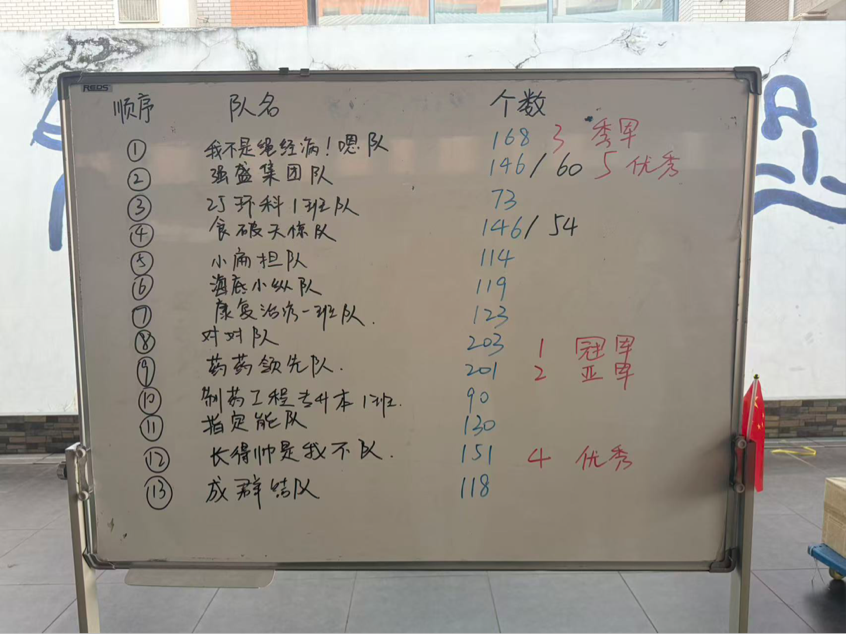 顺序 队名 个数
① 我不是绝经病!嗯队 168 3 季军
② 强盛集团队 146/60 5 优秀
③ 25环科1班队 73
④ 食破天惊队 146/54
⑤ 小扁担队 114
⑥ 海底小纵队 119
⑦ 康复治疗一班队. 123
⑧ 对对队 203 1 冠军
⑨ 药药领先队. 201 2 亚军
⑩ 制药工程专升本1班. 90
⑪ 指定能队 130
⑫ 长得帅是我不队. 151 4 优秀
⑬ 成群结队 118